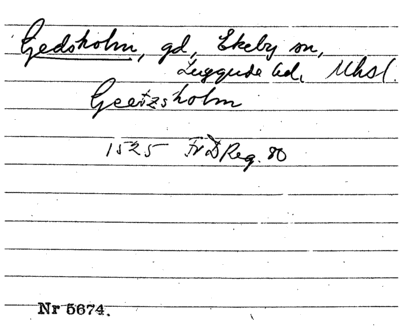 Gedsholm, gd, Ekeby sn,
Luggude hd, Mhsl.
Geetzsholm
1525 Fr I Reg. 80
Nr 5674.